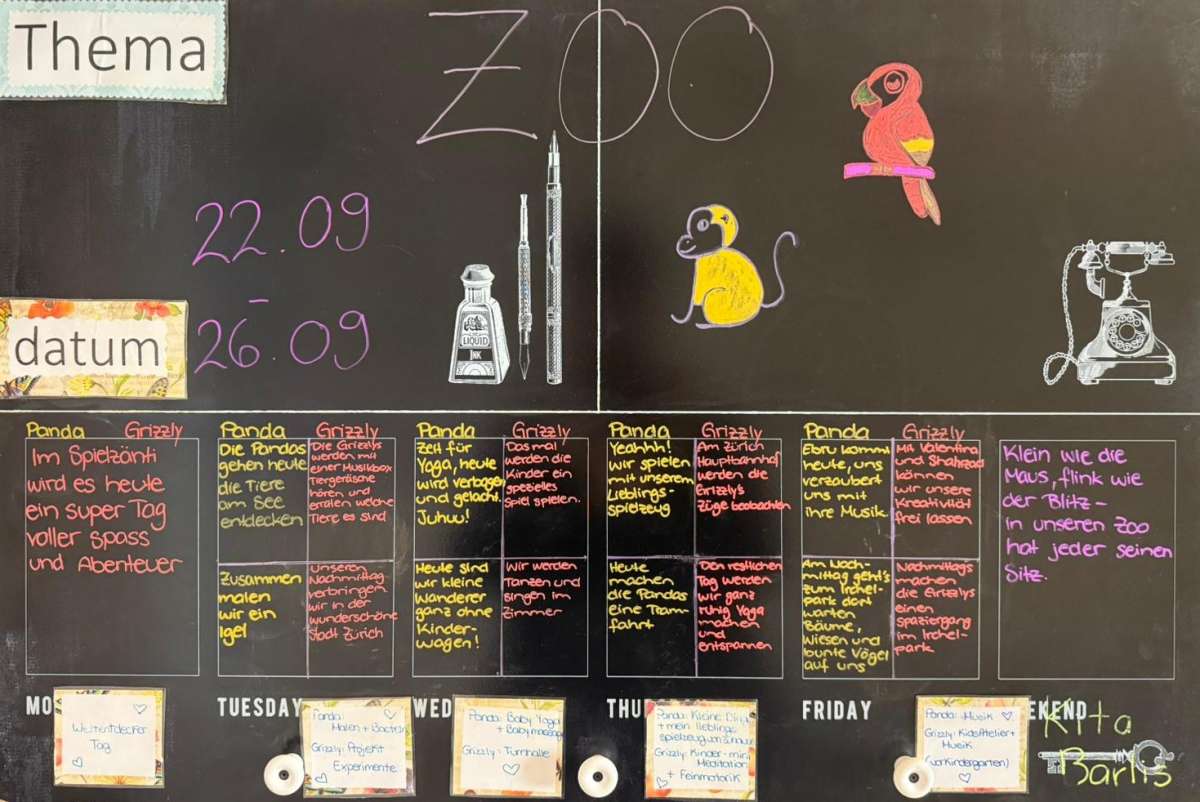 Thema
ZOO
22.09
–
26.09
datum
LIQUID
INK
Panda Grizzly
Im Spielzänti
wird es heute
ein super Tag
voller Spass
und Abenteuer
Panda
Die Pandas
gehen heute
die Tiere
am See
entdecken
Zusammen
malen
wir ein
Igel
Grizzly
Die Grizzlys
werden mit
einer Musikbox
Tiergeräusche
hören und
erraten welche
Tiere es sind
unseren
Nachmittag
verbringen
wir in der
wunderschöne
Stadt Zürich
Panda
Zeit für
Yoga, heute
wird verbogen
und gelacht.
Juhuu!
Heute sind
wir kleine
Wanderer
ganz ohne
Kinder-
wagen!
Grizzly
Das mal
werden die
Kinder ein
spezielles
Spiel spielen.
Wir werden
Tanzen und
singen im
Zimmer
Panda
Yeahhh!
wir spielen
mit unserem
Lieblings-
spielzeug
Heute
machen
die Pandas
eine Tram-
fahrt
Grizzly
Am Zürich
Hauptbahnhof
werden die
Grizzly's
Züge beobachten
Den restlichen
Tag werden
wir ganz
ruhig Yoga
machen
und
entspannen
Panda
Ebru kommt
heute, uns
verzaubert
uns mit
ihre Musik.
Am Nach-
mittag geht's
zum Irchel-
park dort
warten
Bäume,
Wiesen und
bunte Vögel
auf uns
Grizzly
Mit Valentina
und Shahrzad
können
wir unsere
Kreativität
frei lassen
Nachmittags
machen
die Grizzlys
einen
spaziergang
im Irchel-
park
Klein wie die
Maus, flink wie
der Blitz -
in unseren Zoo
hat jeder seinen
Sitz.
MO
TUESDAY
WED
THU
FRIDAY
EKEND
Weltentdecker
Tag
Panda:
Malen + Basteln
Grizzly: Projekt
Experimente
Panda: Baby Yoga
+ Babymassage
Grizzly: Turnhalle
Panda: Kleine
+ mein lieblings
spielzeug von Zuhause
Grizzly: Kinder-mini
Meditation
+ Feinmotorik
Panda: Musik
Grizzly: KidsAtelier +
Musik
(vorkindergarten)
Kita
Barlis